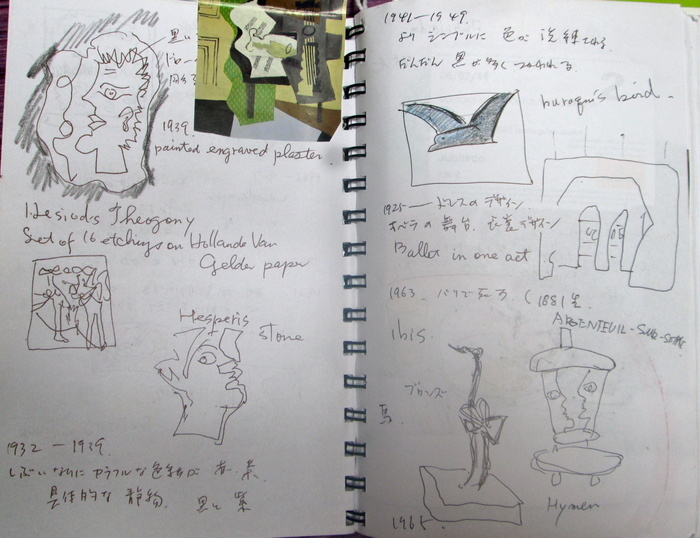 黒い
1939.
painted engraved plaster.
Hesiods Theogony
Set of 16 etchings on Hollande Van
Gelder paper
Hesperis
stone
1932 — 1939.
しぶいなりにカラフルな色彩が 赤、紫、
具体的な静物. 黒と紫
1941 — 1949.
よりシンプルに 色が洗練される.
だんだん 黒が多くつかわれる.
buraqu's bird.
1925 — ドレスのデザイン
オペラの舞台、衣装デザイン
Ballet in one act
1963. パリで死す. (1881生.
ARGENTEUIL-SUR-SEINE
ibis.
ブロンズ
鳥.
Hymen
1965.